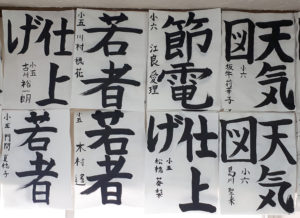 天気図
小六
坂本莉華子
節電
小六
江良愛理
若者
小五
川村穂花
仕上げ
小五
古川裕一朗
天気図
小六
仕上げ
小五
松橋
若者
小五
木村
若者
小五
門間